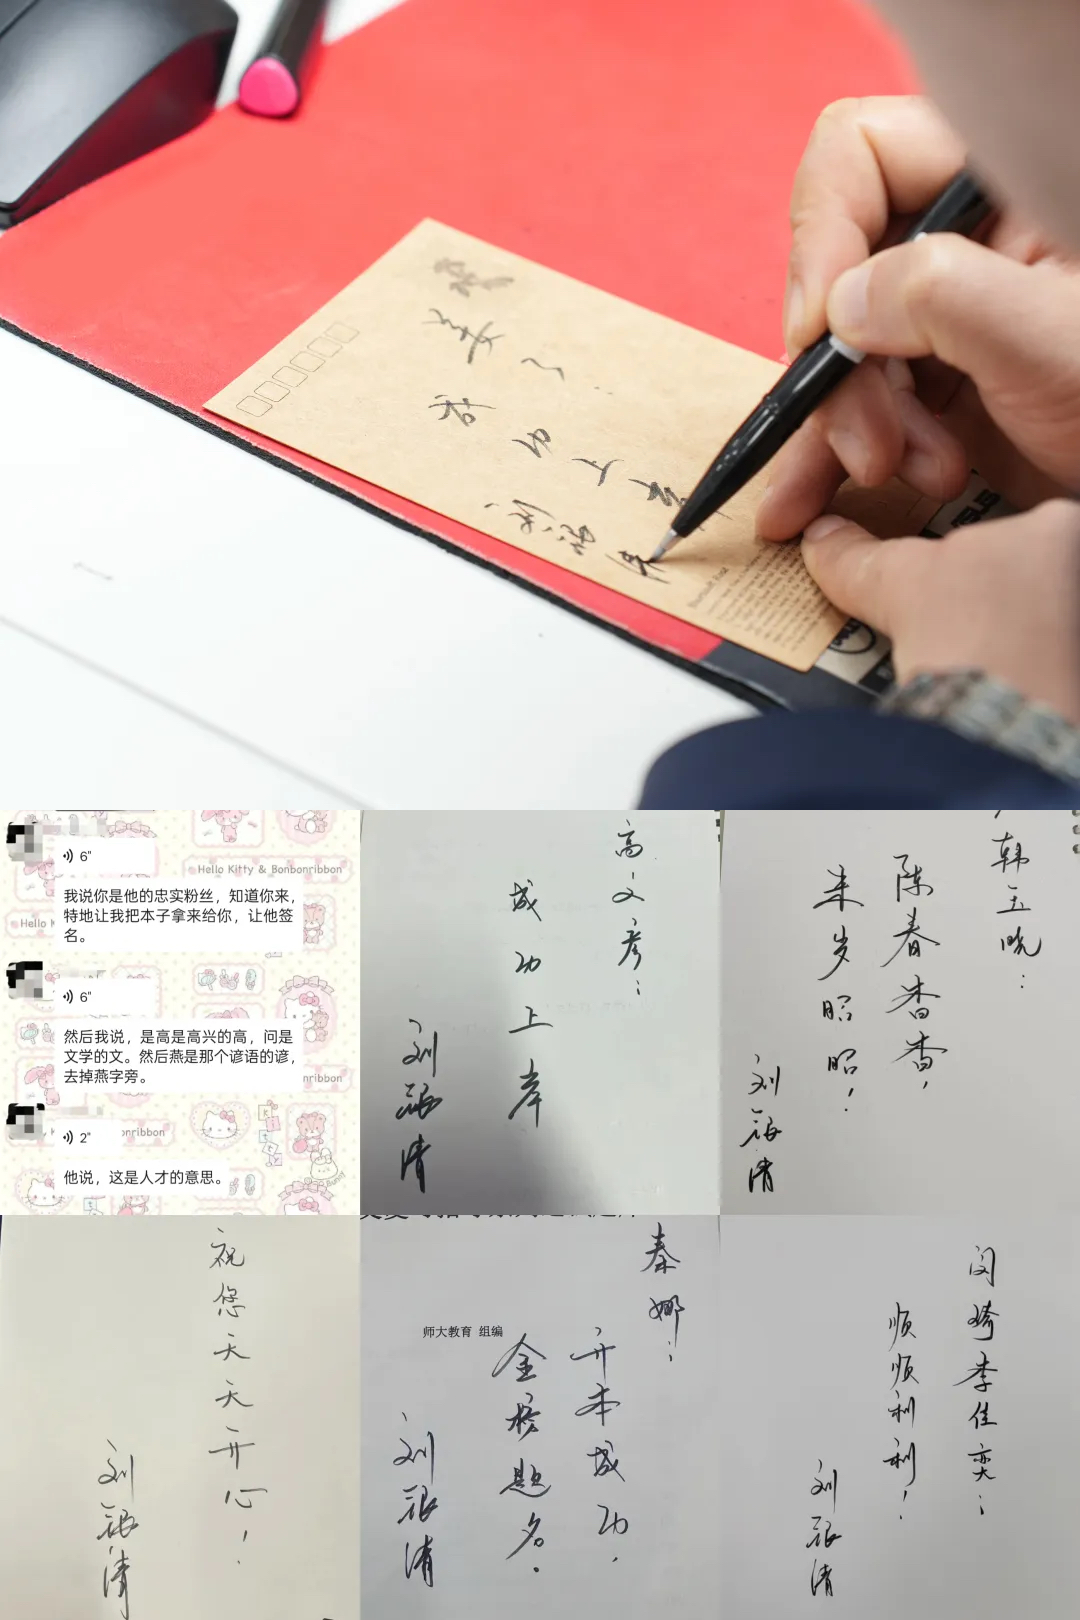 成功上岸
6"
我说你是他的忠实粉丝，知道你来，
特地让我把本子拿来给你，让他签
名。
6"
然后我说，是高是高兴的高，问是
文学的文。然后燕是那个谚语的谚，
去掉燕字旁。
2"
他说，这是人才的意思。
Hello Kitty & Bonbonribbon
高文彦：
成功上岸
韩玉晓：
陈春杳杳，
来岁昭昭！
祝您天天开心！
师大教育 组编
秦娜：
开本成功，
金榜题名。
闵琦李佳奕：
顺顺利利！